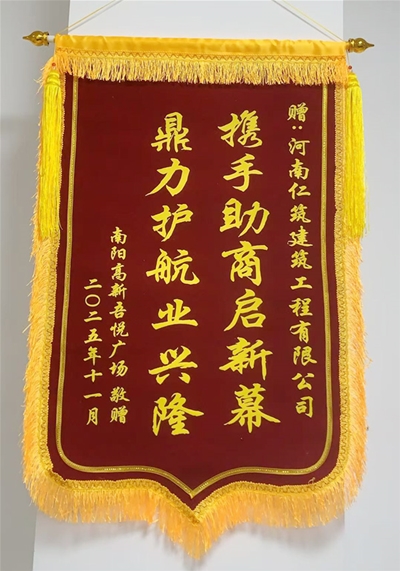 赠：河南仁筑建筑工程有限公司
携手助商启新幕
鼎力护航业兴隆
南阳高新吾悦广场 敬赠
二〇二五年十一月